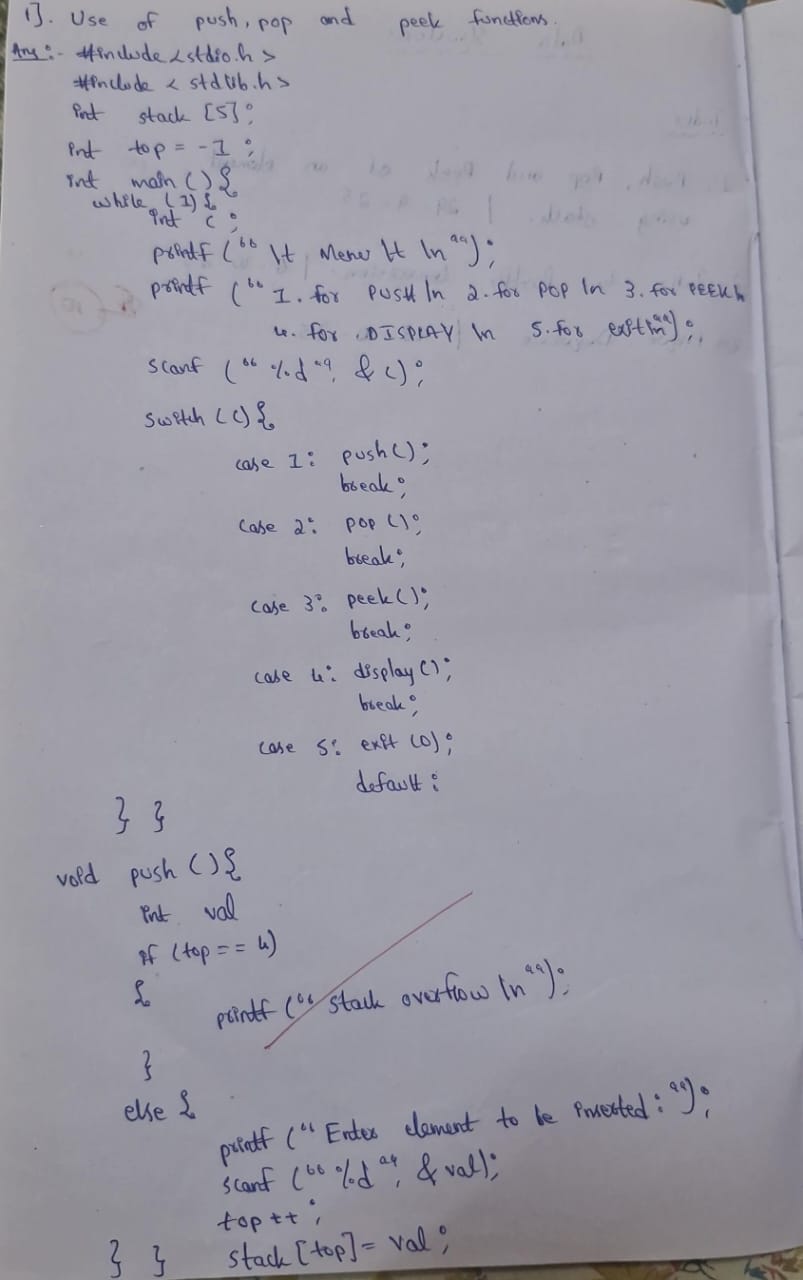 1]. Use of push, pop and peek functions.
Ans:- #include <stdio.h>
#include < stdlib.h>
int stack [5];
int top = -1;
int main () {
while (1) {
int c;
printf ("\t Menu \t \n");
printf ("1. for PUSH \n 2. for POP \n 3. for PEEK \n
4. for DISPLAY \n 5. for exit \n");
scanf ("%d", &c);
switch (c) {
case 1: push();
break;
case 2: pop ();
break;
case 3: peek();
break;
case 4: display();
break;
case 5: exit (0);
default:
} }
void push () {
int val
if (top == 4)
{
printf ("Stack overflow \n");
}
else {
printf ("Enter element to be inserted:");
scanf ("%d", &val);
top ++;
} } stack [top] = val;